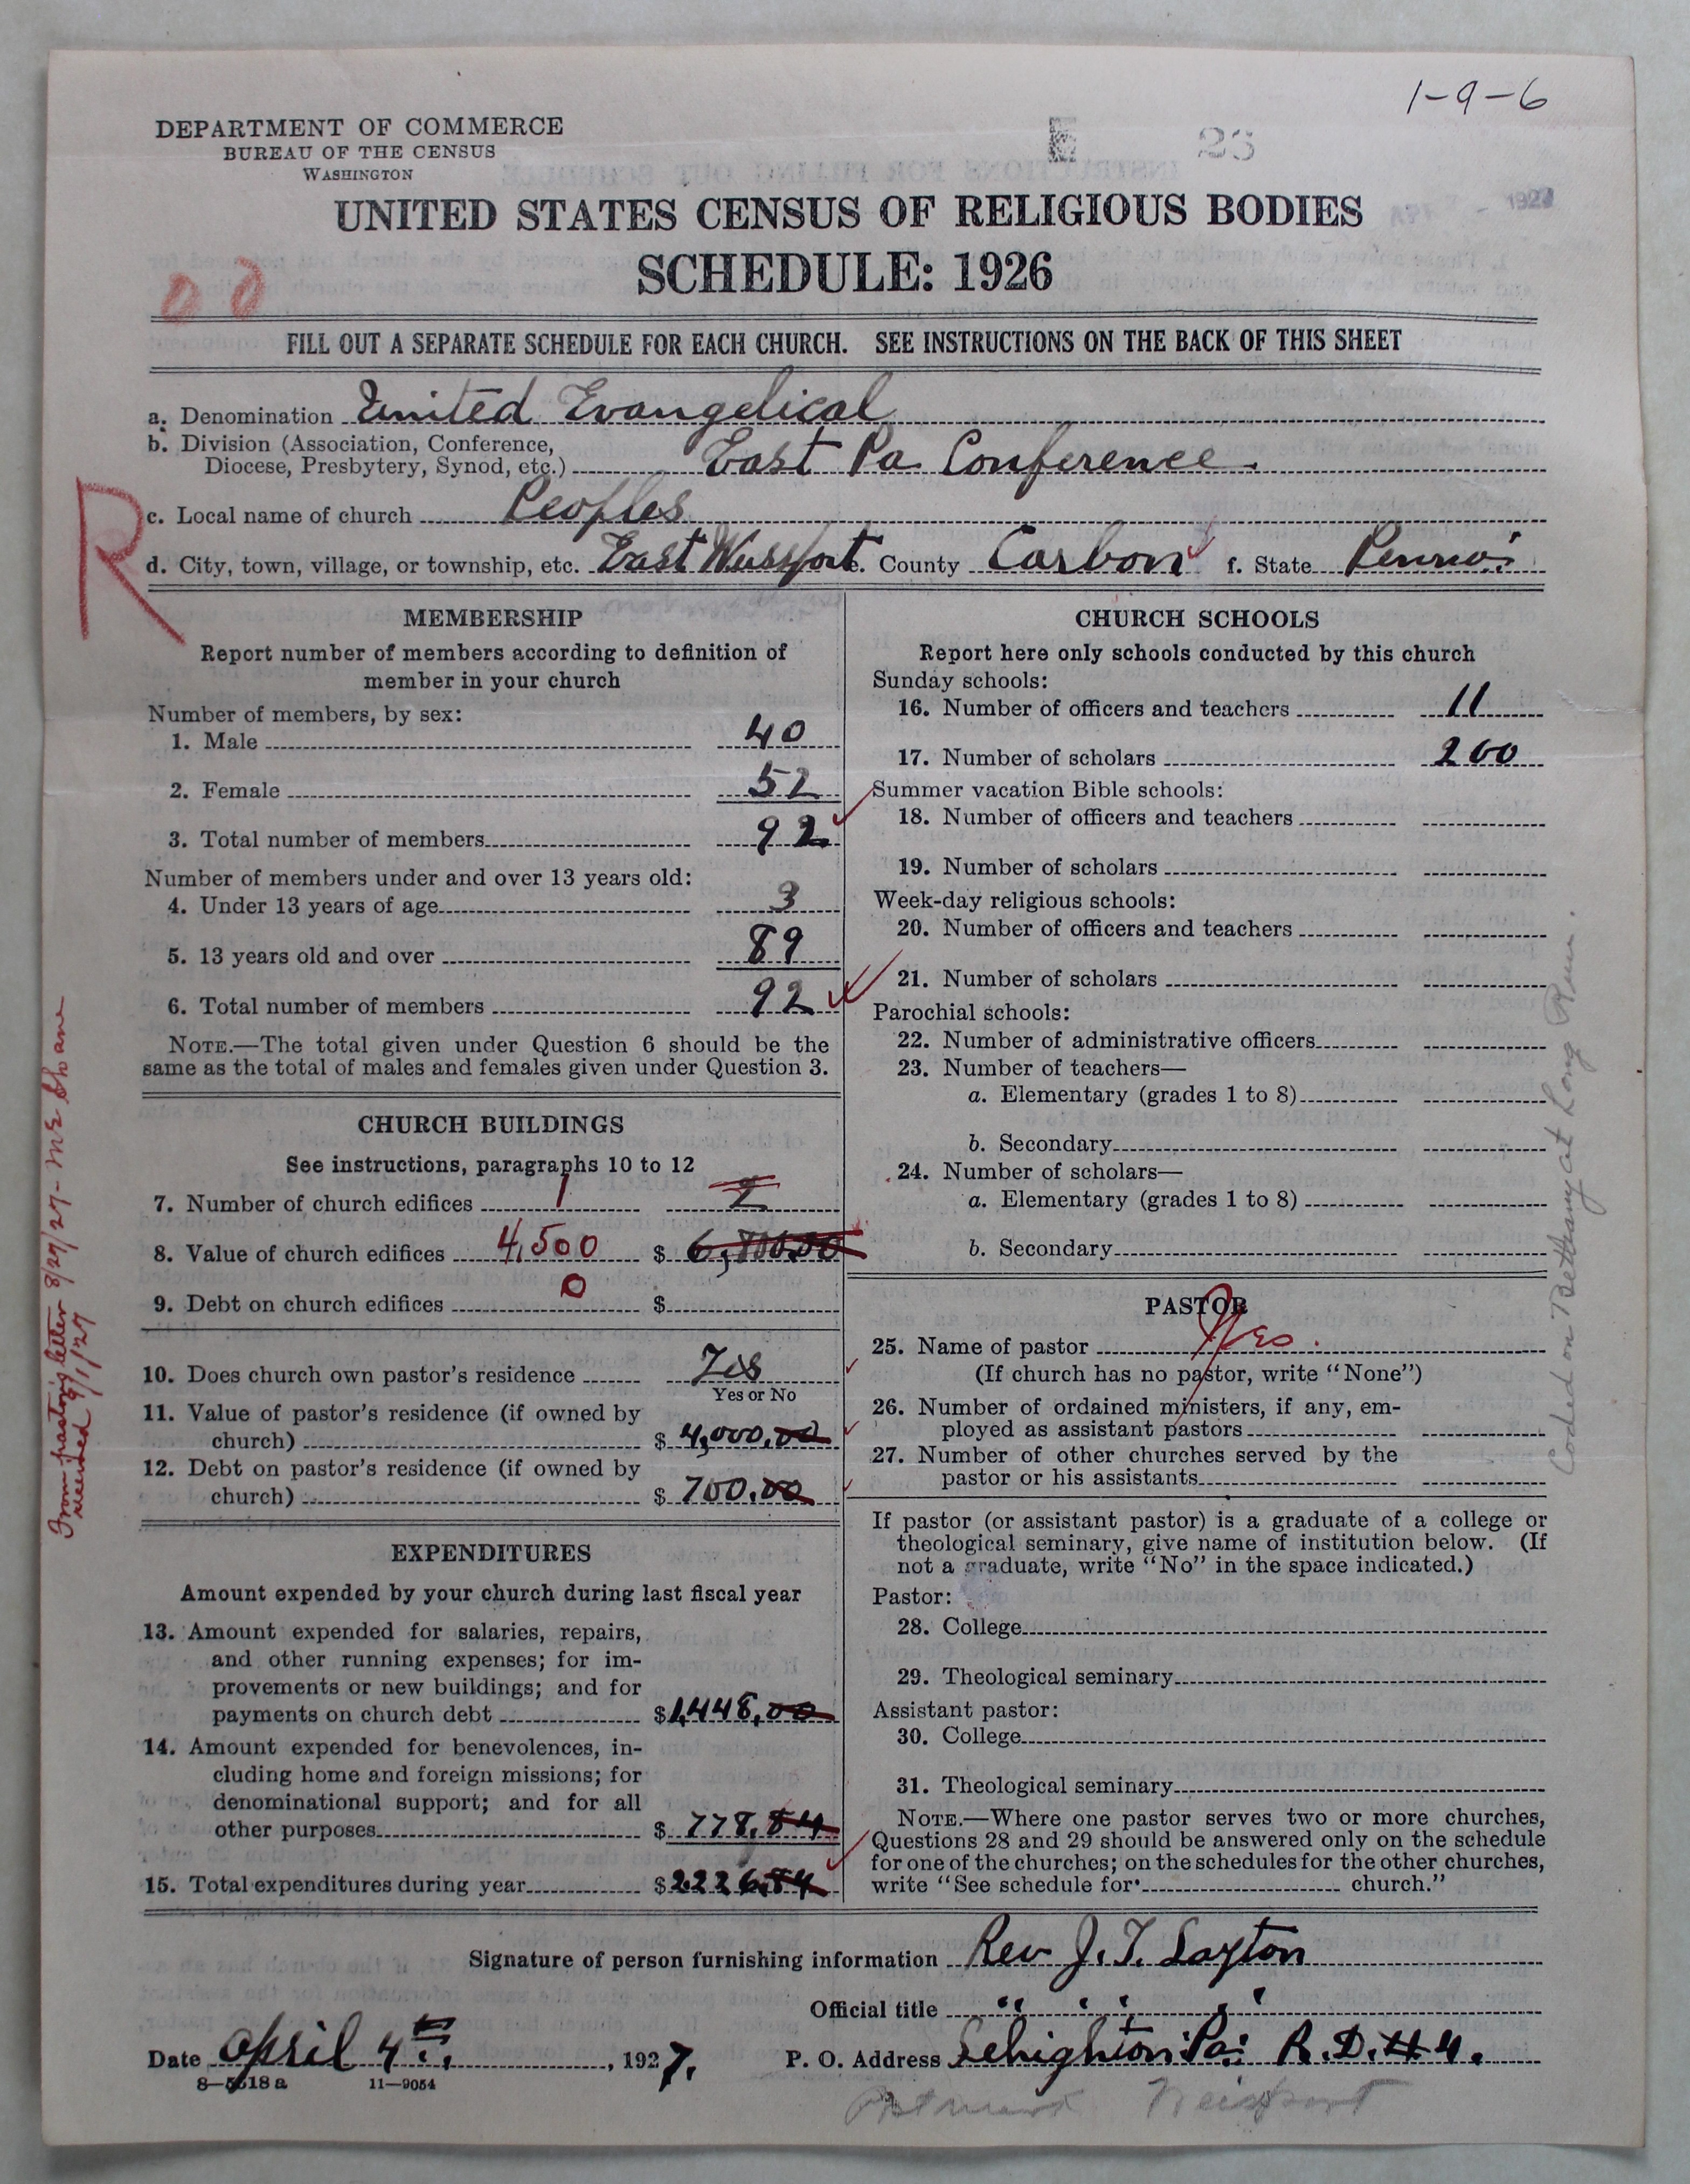 1-9-6
DEPARTMENT OF COMMERCE
BUREAU OF THE CENSUS
WASHINGTON
E 23
1927
UNITED STATES CENSUS OF RELIGIOUS BODIES
SCHEDULE: 1926
FILL OUT A SEPARATE SCHEDULE FOR EACH CHURCH. SEE INSTRUCTIONS ON THE BACK OF THIS SHEET
a. Denomination United Evangelical
b. Division (Association, Conference,
Diocese, Presbytery, Synod, etc.) East Pa Conference.
R
c. Local name of church Peoples
d. City, town, village, or township, etc. East Weissport e. County Carbon f. State Penna.
MEMBERSHIP
Report number of members according to definition of
member in your church
Number of members, by sex:
1. Male 40
2. Female 52
3. Total number of members 92
Number of members under and over 13 years old:
4. Under 13 years of age 3
5. 13 years old and over 89
6. Total number of members 92
NOTE.—The total given under Question 6 should be the
same as the total of males and females given under Question 3.
CHURCH BUILDINGS
See instructions, paragraphs 10 to 12
7. Number of church edifices 1 2
8. Value of church edifices 4,500 $ 6,800.00
9. Debt on church edifices 0 $
10. Does church own pastor's residence Yes
Yes or No
11. Value of pastor's residence (if owned by
church) $ 4,000.00
12. Debt on pastor's residence (if owned by
church) $ 700.00
EXPENDITURES
Amount expended by your church during last fiscal year
13. Amount expended for salaries, repairs,
and other running expenses; for im-
provements or new buildings; and for
payments on church debt $1,448.00
14. Amount expended for benevolences, in-
cluding home and foreign missions; for
denominational support; and for all
other purposes $ 778.84
15. Total expenditures during year $2226.84
CHURCH SCHOOLS
Report here only schools conducted by this church
Sunday schools:
16. Number of officers and teachers 11
17. Number of scholars 200
Summer vacation Bible schools:
18. Number of officers and teachers
19. Number of scholars
Week-day religious schools:
20. Number of officers and teachers
21. Number of scholars
Parochial schools:
22. Number of administrative officers
23. Number of teachers—
a. Elementary (grades 1 to 8)
b. Secondary
24. Number of scholars—
a. Elementary (grades 1 to 8)
b. Secondary
PASTOR
25. Name of pastor Yes.
(If church has no pastor, write "None")
26. Number of ordained ministers, if any, em-
ployed as assistant pastors
27. Number of other churches served by the
pastor or his assistants
If pastor (or assistant pastor) is a graduate of a college or
theological seminary, give name of institution below. (If
not a graduate, write "No" in the space indicated.)
Pastor:
28. College
29. Theological seminary
Assistant pastor:
30. College
31. Theological seminary
NOTE.—Where one pastor serves two or more churches,
Questions 28 and 29 should be answered only on the schedule
for one of the churches; on the schedules for the other churches,
write "See schedule for church."
Signature of person furnishing information Rev J. T. Layton
Official title " " " " "
Date April 4th., 1927. P. O. Address Lehighton Pa. R.D. #4.
8—5518 a 11—9054
Postmark Weissport
From pastor's letter 8/29/27 - McShane
received 9/1/27
Coded on Bethany at Long Run.